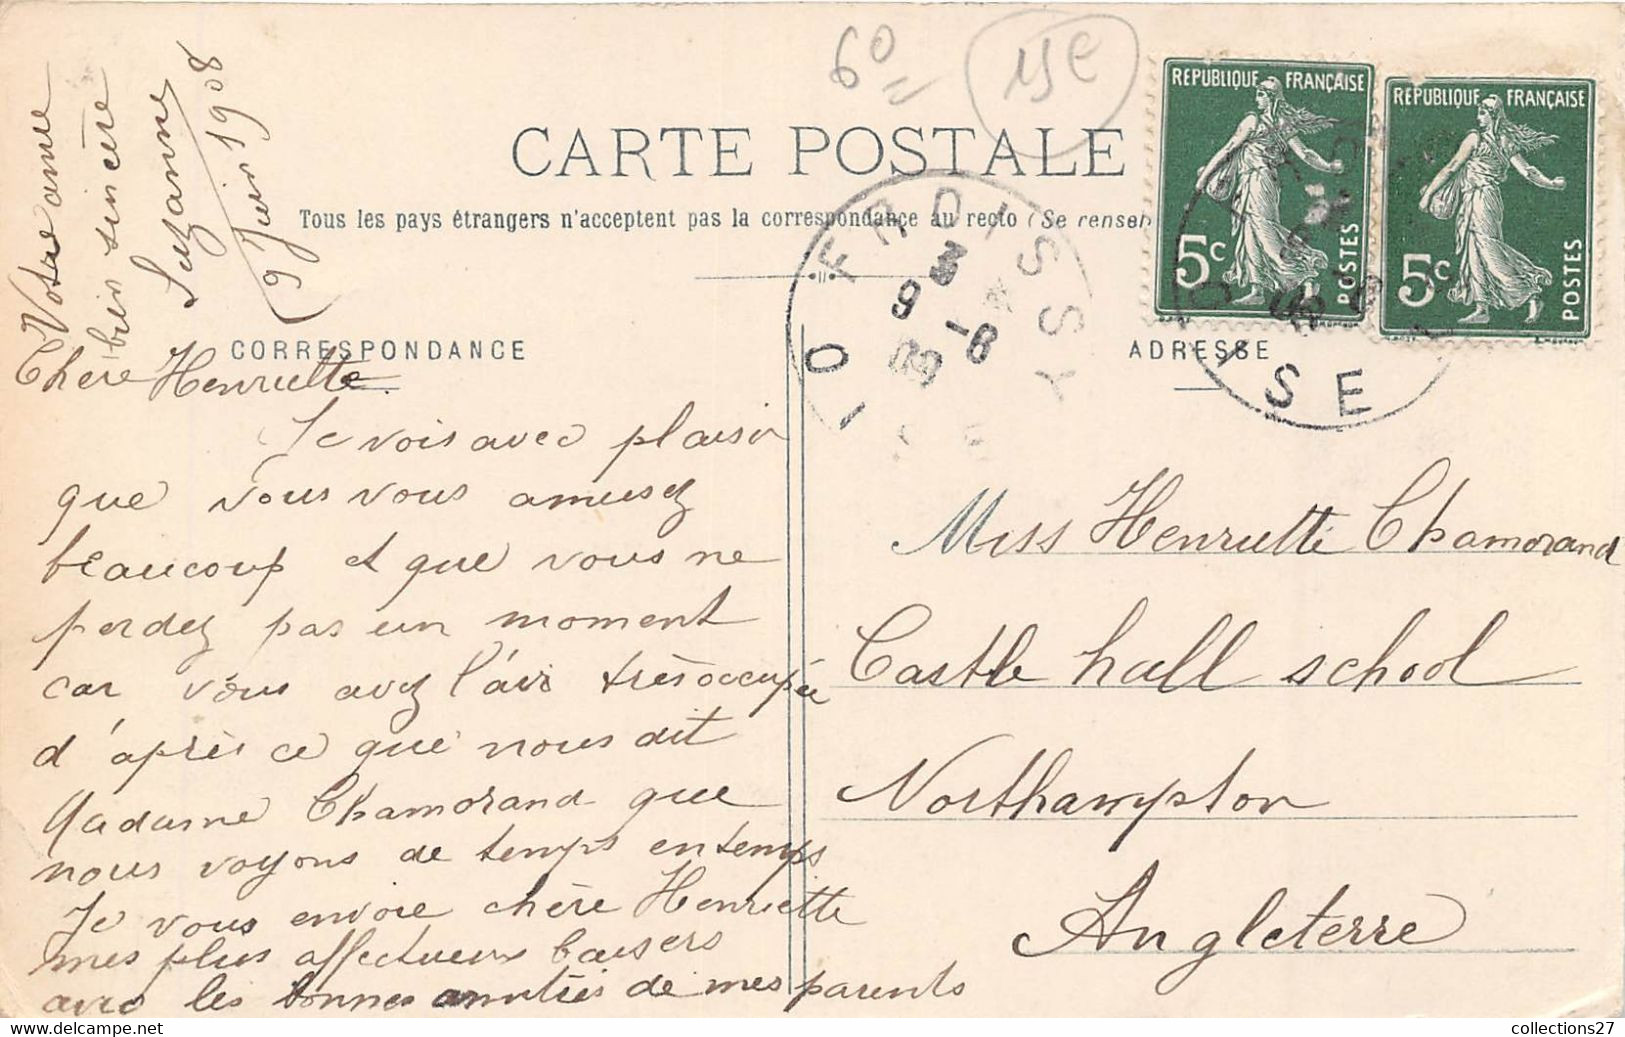 60
15e
CARTE POSTALE
Tous les pays étrangers n'acceptent pas la correspondance au recto (Se renseig
RÉPUBLIQUE FRANÇAISE
5c
POSTES
RÉPUBLIQUE FRANÇAISE
5c
POSTES
FROISSY
OISE
3
9 -6
08
CORRESPONDANCE
ADRESSE
Chère Henriette
Je vois avec plaisir
que vous vous amusez
beaucoup et que vous ne
perdez pas un moment
car vous avez l'air très occupée
d'après ce que nous dit
Madame Chamorand que
nous voyons de temps en temps
Je vous envoie chère Henriette
mes plus affectueux baisers
avec les bonnes amitiés de mes parents
Votre amie
bien sincère
Suzanne
9 Juin 1908
Miss Henriette Chamorand
Castle hall school
Northampton
Angleterre
collections27